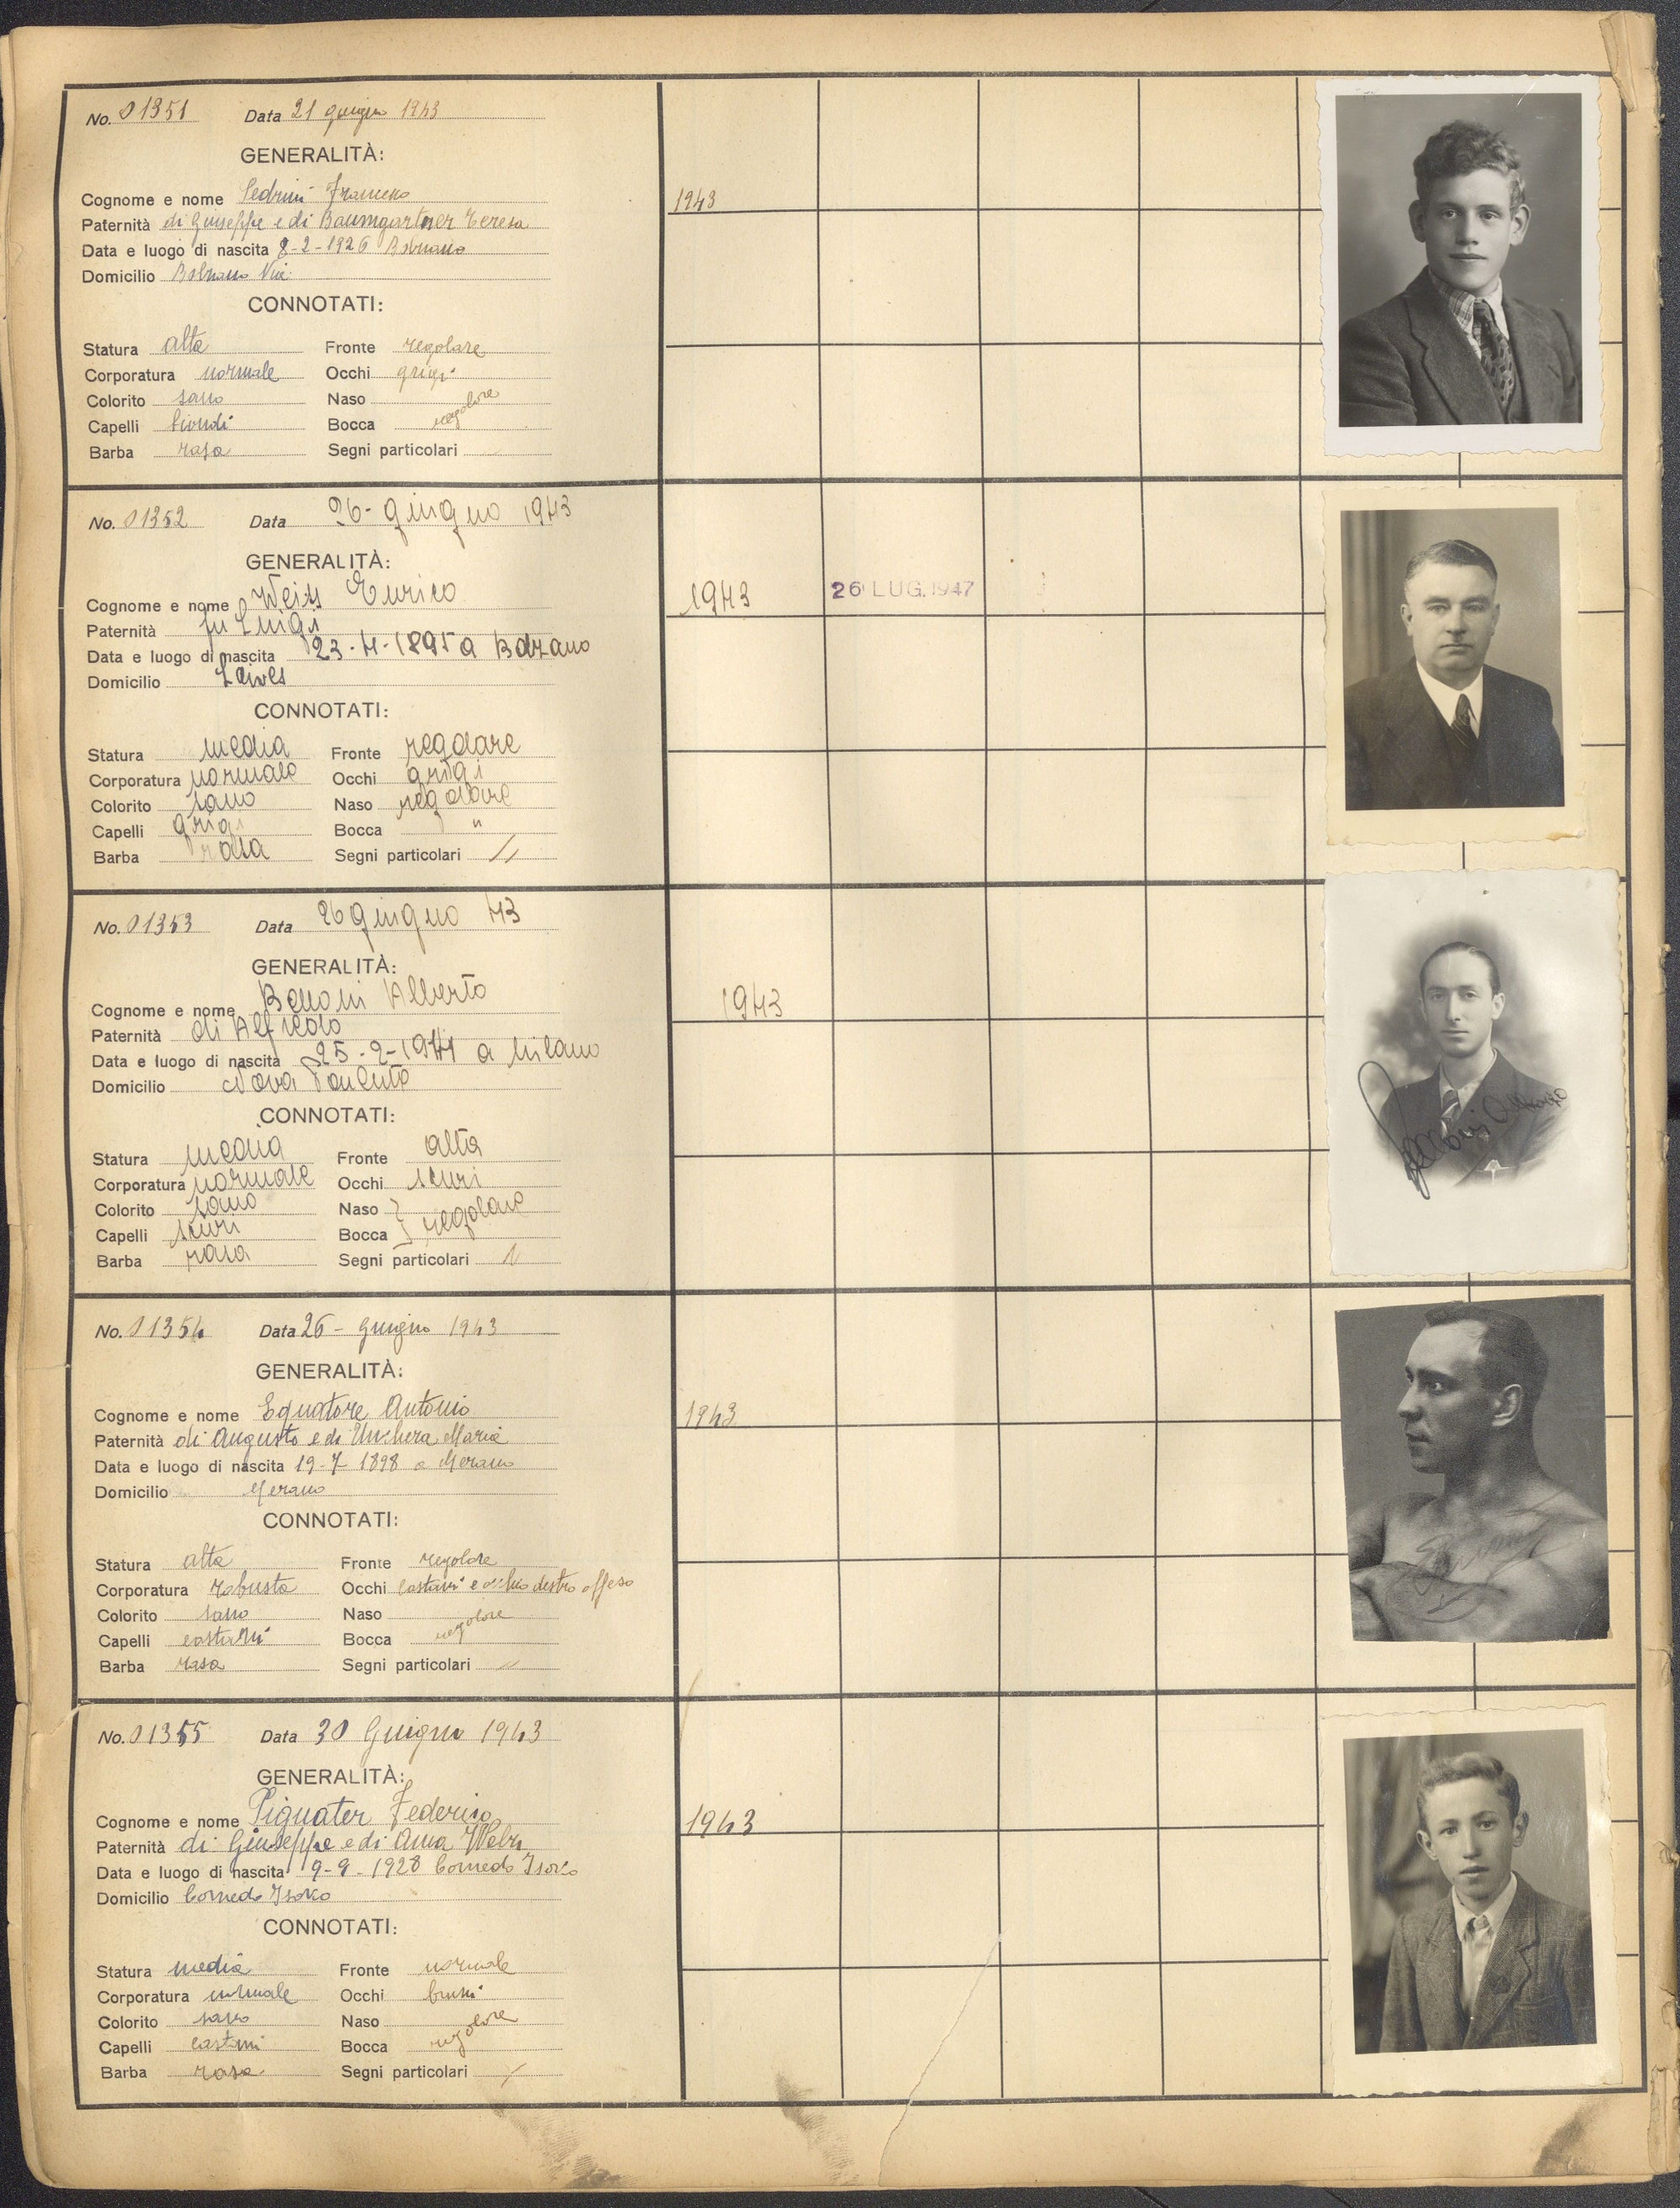 No. 01351 Data 21 giugno 1943
GENERALITÀ:
Cognome e nome Pedrini Francesco
Paternità di Giuseppe e di Baumgartner Teresa
Data e luogo di nascita 8-2-1926 Bolzano
Domicilio Bolzano Via
CONNOTATI:
Statura alta Fronte regolare
Corporatura normale Occhi grigi
Colorito sano Naso
Capelli biondi Bocca regolare
Barba rasa Segni particolari
1943
No. 01352 Data 26- giugno 1943
GENERALITÀ:
Cognome e nome Weiss Enrico
Paternità fu Luigi
Data e luogo di nascita 23-4-1895 a Bolzano
Domicilio Laives
CONNOTATI:
Statura media Fronte regolare
Corporatura normale Occhi grigi
Colorito sano Naso regolare
Capelli grigi Bocca "
Barba rasa Segni particolari //
1943 26 LUG. 1947
No. 01353 Data 26 giugno 43
GENERALITÀ:
Cognome e nome Belloni Alberto
Paternità di Alfredo
Data e luogo di nascita 25-2-1911 a Milano
Domicilio Nova Ponente
CONNOTATI:
Statura media Fronte alta
Corporatura normale Occhi scuri
Colorito sano Naso
Capelli scuri Bocca } regolare
Barba rasa Segni particolari /
1943
No. 01354 Data 26- giugno 1943
GENERALITÀ:
Cognome e nome Equatore Antonio
Paternità di Augusto e di Maria
Data e luogo di nascita 19-7 1898 a Merano
Domicilio Merano
CONNOTATI:
Statura alta Fronte regolare
Corporatura robusta Occhi castani e occhio destro offeso
Colorito sano Naso
Capelli castani Bocca regolare
Barba rasa Segni particolari /
1943
No. 01355 Data 30 Giugno 1943
GENERALITÀ:
Cognome e nome Pignater Federico
Paternità di Giuseppe e di Anna
Data e luogo di nascita 9-9-1928 Cornedo Isarco
Domicilio Cornedo Isarco
CONNOTATI:
Statura media Fronte normale
Corporatura normale Occhi bruni
Colorito sano Naso
Capelli castani Bocca regolare
Barba rasa Segni particolari /
1943